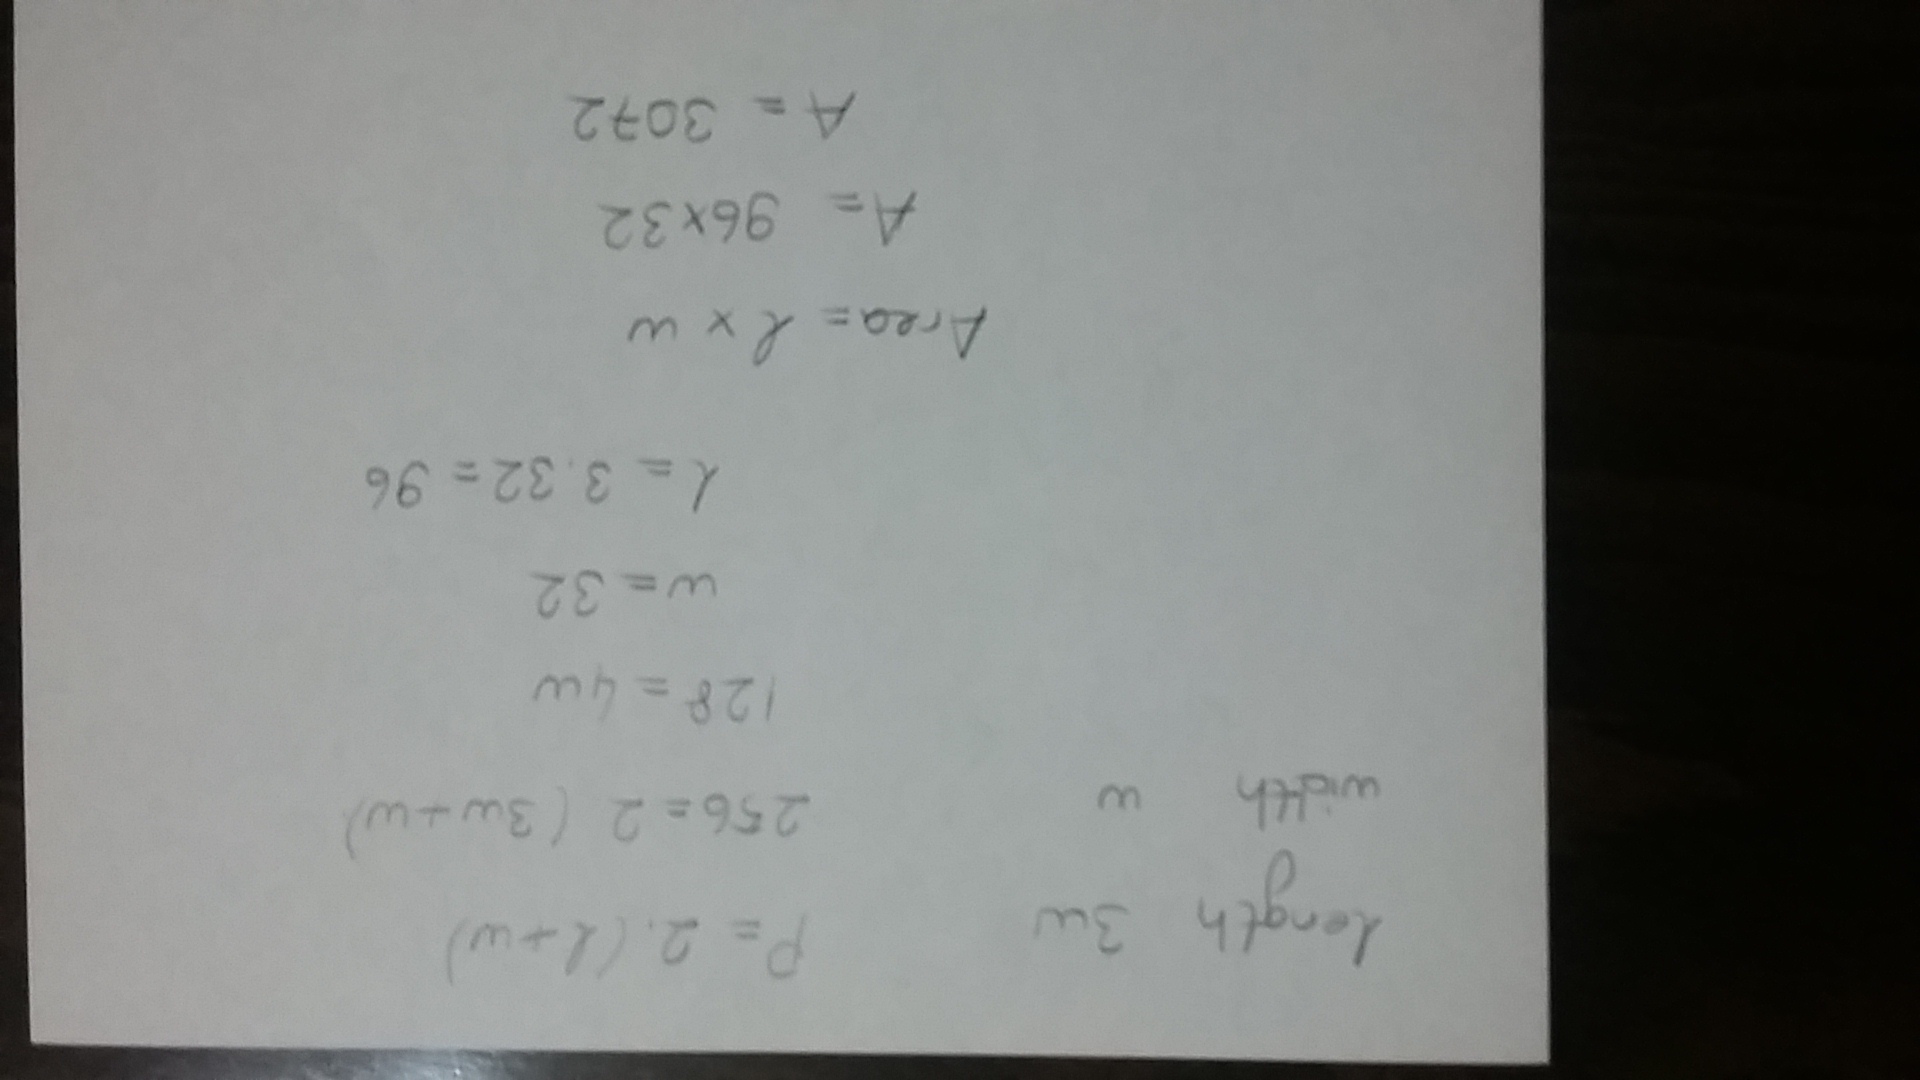 length 3w
width w
P = 2.(l+w)
256 = 2 (3w+w)
128 = 4w
w = 32
l = 3.32 = 96
Area = l x w
A = 96x32
A = 3072